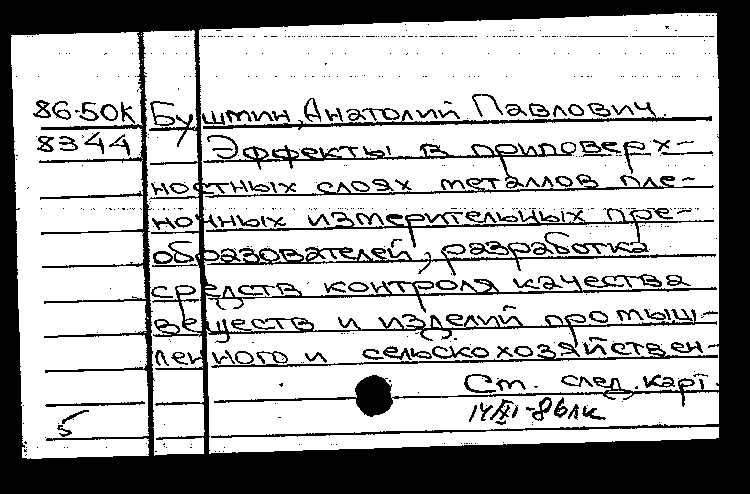 86-50К Бушмин, Анатолий Павлович
8344 Эффекты в приповерх-
ностных слоях металлов пле-
ночных измерительных пре-
образователей, разработка
средств контроля качества
веществ и изделий промыш-
ленного и сельскохозяйствен-
См. след. карт.
5